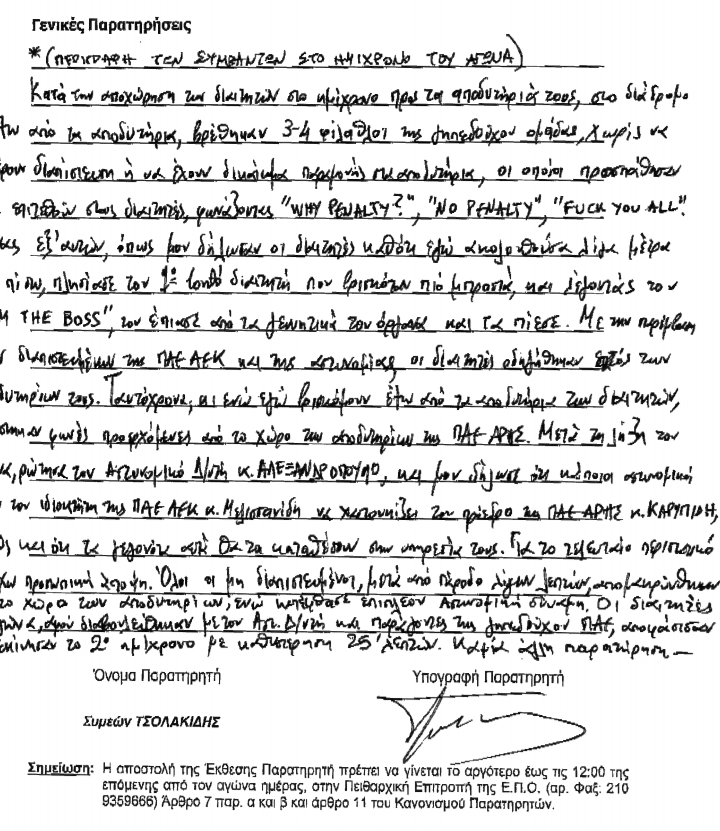 Γενικές Παρατηρήσεις
*(ΠΕΡΙΓΡΑΦΗ ΤΩΝ ΣΥΜΒΑΝΤΩΝ ΣΤΟ ΗΜΙΧΡΟΝΟ ΤΟΥ ΑΓΩΝΑ)
Κατά την αποχώρηση των διαιτητών στο ημίχρονο προς τα αποδυτήριά τους, στο διάδρομο
από τα αποδυτήρια, βρέθηκαν 3-4 φίλαθλοι της γηπεδούχου ομάδας, χωρίς να
διαπίστευση ή να έχουν δικαίωμα παραμονής στα αποδυτήρια, οι οποίοι προσπάθησαν
επιτεθούν στους διαιτητές, φωνάζοντας "WHY PENALTY?", "NO PENALTY", "FUCK YOU ALL".
εξ' αυτών, όπως μου δήλωσαν οι διαιτητές καθότι εγώ ακολουθούσα λίγα μέτρα
πίσω, πλησίασε τον 1º βοηθό διαιτητή που βρισκόταν πιο μπροστά, και λέγοντάς του
THE BOSS", τον έπιασε από τα γεννητικά του όργανα και τα πίεσε. Με την παρέμβαση
διαπιστευμένων της ΠΑΕ ΑΕΚ και της αστυνομίας, οι διαιτητές οδηγήθηκαν εντός των
τους. Ταυτόχρονα, κι ενώ εγώ βρισκόμουν έξω από τα αποδυτήρια των διαιτητών,
φωνές προερχόμενες από το χώρο των αποδυτηρίων της ΠΑΕ ΑΡΗΣ. Μετά τη λήξη του
ρώτησα τον Αστυνομικό Δ/ντή κ. ΑΛΕΞΑΝΔΡΟΠΟΥΛΟ, και μου δήλωσε ότι κάποιοι αστυνομικοί
τον ιδιοκτήτη της ΠΑΕ ΑΕΚ κ. Μελισσανίδη να χαστουκίζει τον πρόεδρο της ΠΑΕ ΑΡΗΣ κ. ΚΑΡΥΠΙΔΗ,
και ότι τα γεγονότα αυτά θα τα καταθέσουν στην υπηρεσία τους. Για το τελευταίο περιστατικό
προσωπική άποψη. Όλοι οι μη διαπιστευμένοι, μετά από πέροδο λίγων λεπτών, απομακρύνθηκαν
το χώρο των αποδυτηρίων, ενώ κατέφθασε επιπλέον Αστυνομική δύναμη. Οι διαιτητές
αφού διαβουλεύθηκαν με τον Αστ. Δ/ντή και παράγοντες της γηπεδούχου ΠΑΕ, αποφάσισαν
το 2º ημίχρονο με καθυστέρηση 25' λεπτών. Καμία άλλη παρατήρηση —
Όνομα Παρατηρητή Υπογραφή Παρατηρητή
Συμεών ΤΣΟΛΑΚΙΔΗΣ
Σημείωση: Η αποστολή της Έκθεσης Παρατηρητή πρέπει να γίνεται το αργότερο έως τις 12:00 της
επόμενης από τον αγώνα ημέρας, στην Πειθαρχική Επιτροπή της Ε.Π.Ο. (αρ. Φαξ: 210
9359666) Άρθρο 7 παρ. α και β και άρθρο 11 του Κανονισμού Παρατηρητών.